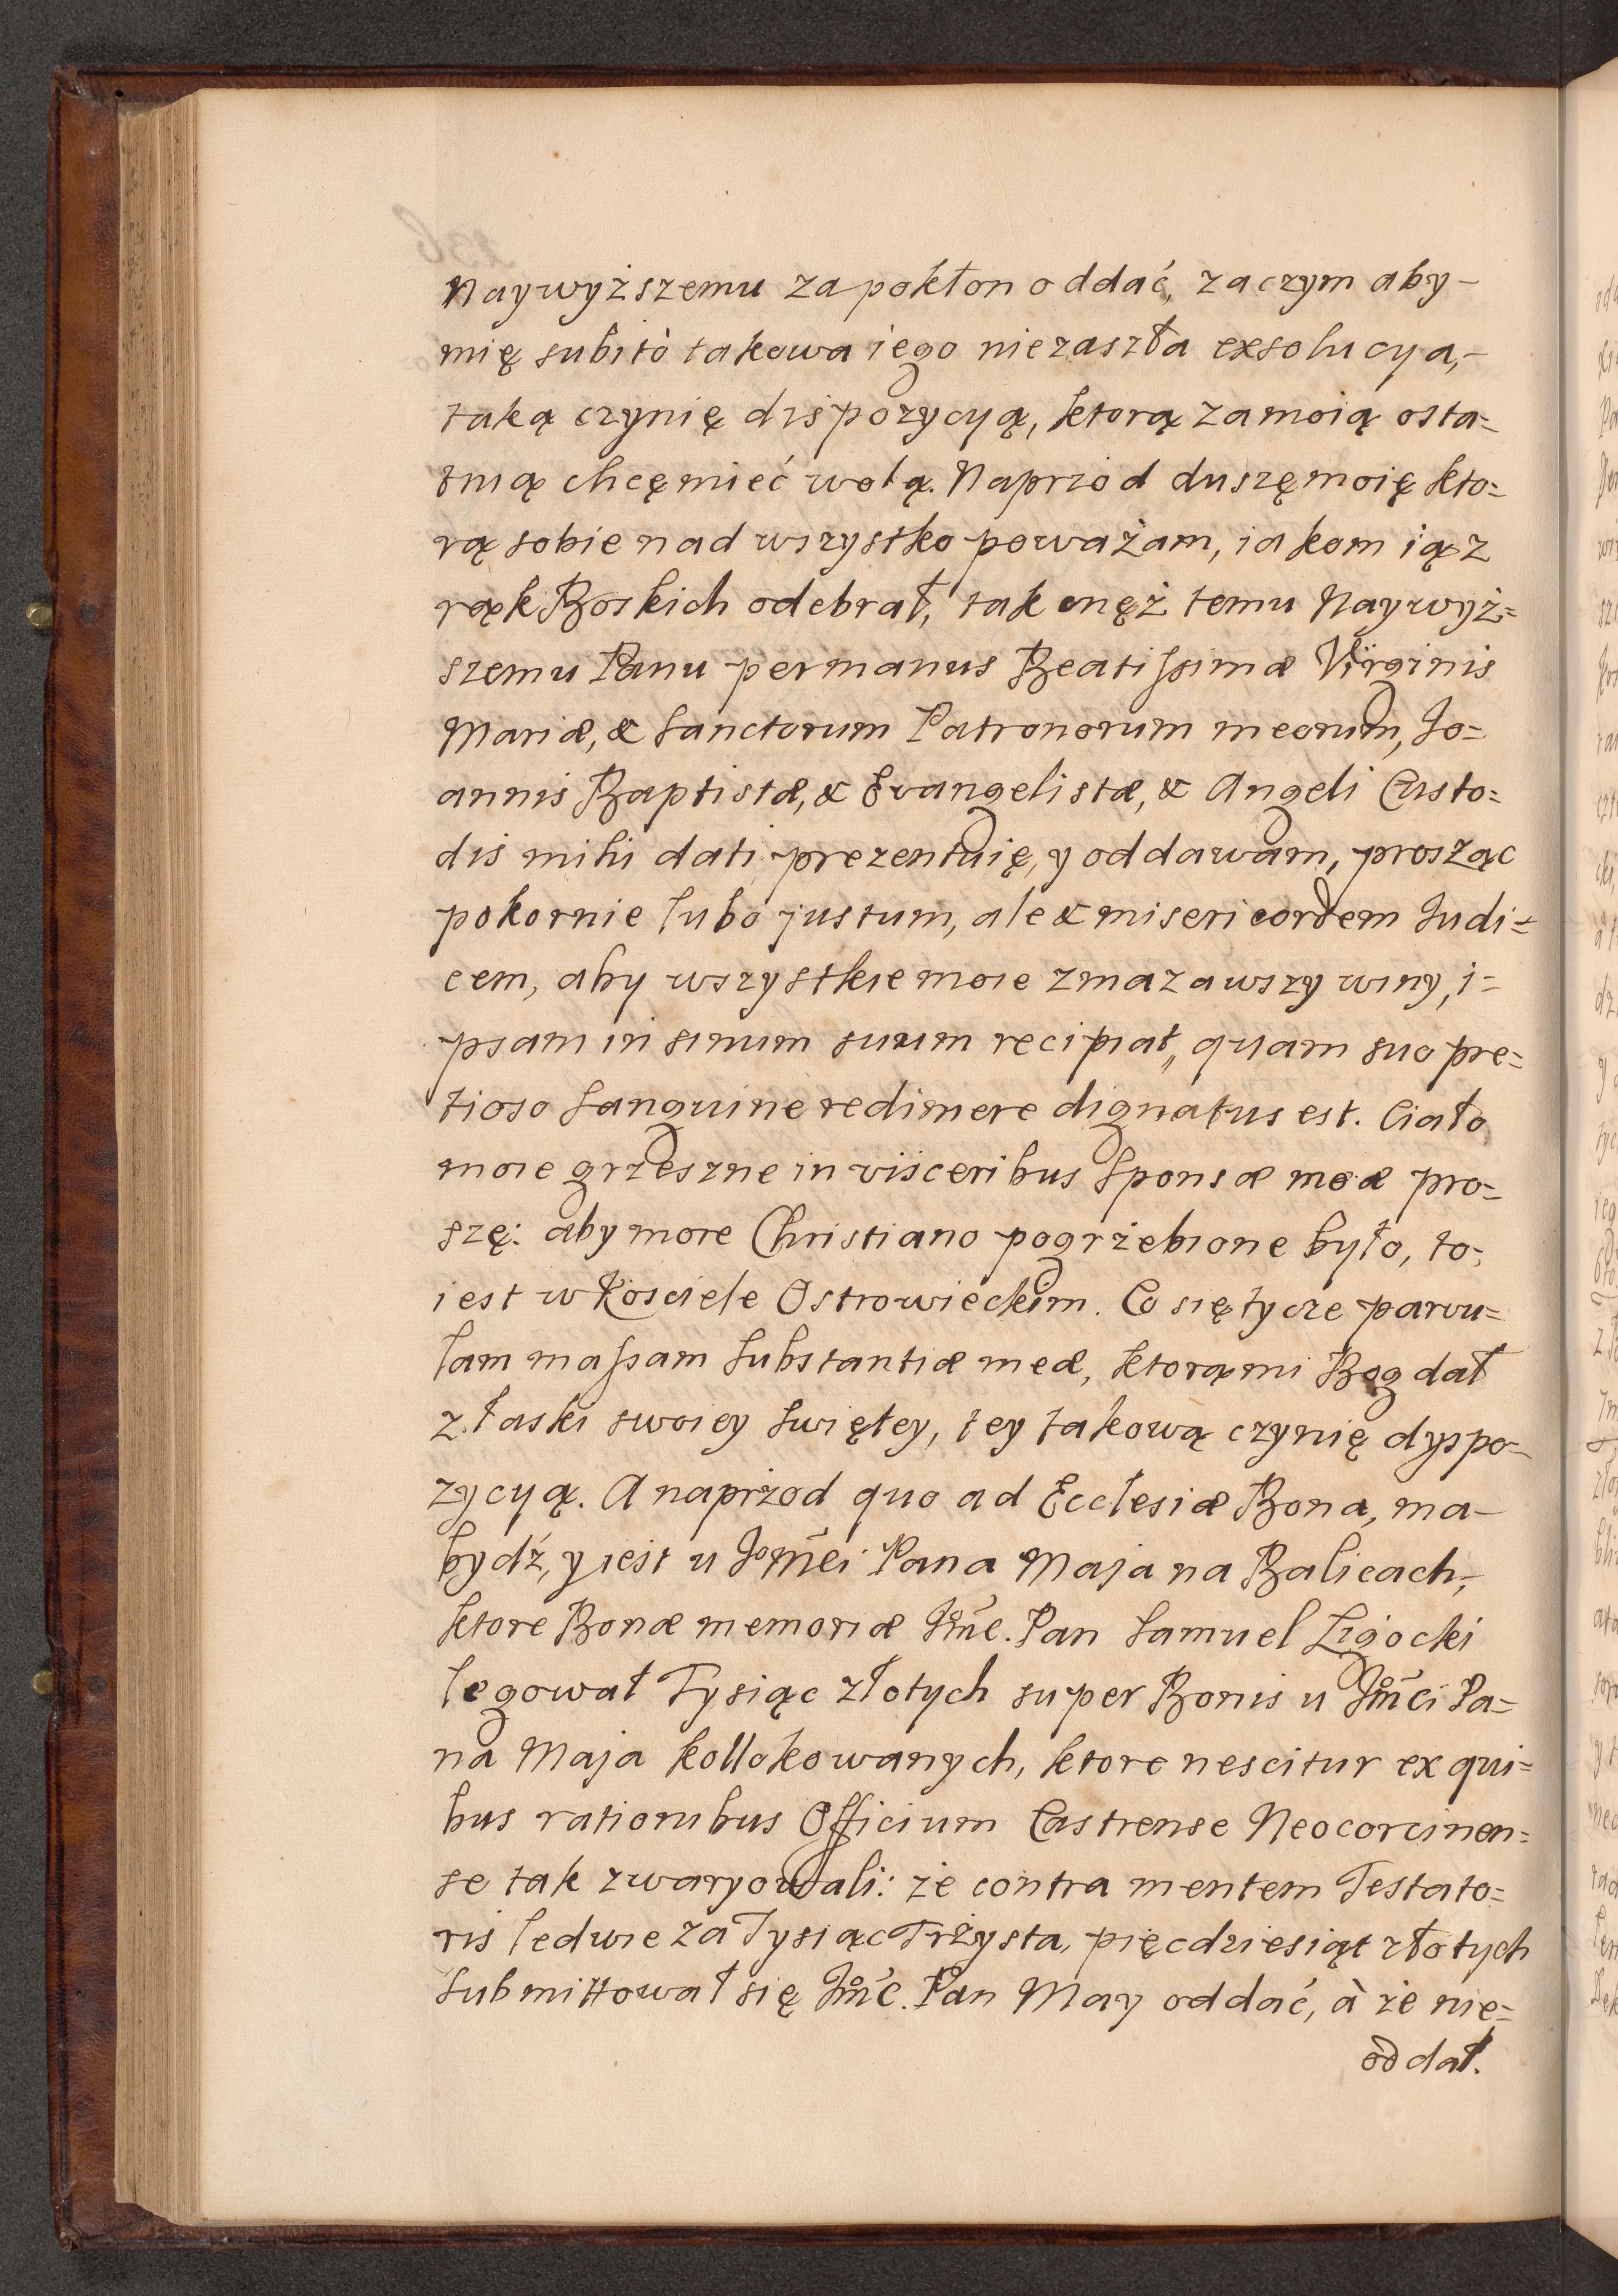 Naywyższemu za pokłon oddać, zaczym aby-
mię subitò takowa iego niezaszła exsolucya,-
taką czynię dispozycyą, ktorą za moią osta=
tnią chcę mieć wolą. Naprzod duszę moię kto=
rą sobie nad wszystko poważam, iakom ią z
rąk Boskich odebrał, tak onęż temu Naywyż=
szemu Panu per manus Beatissimæ Virginis
Mariæ, & Sanctorum Patronorum meorum, Jo=
annis Baptistæ, & Evangelistæ, & Angeli Custo=
dis mihi dati prezentuię, y oddawam, prosząc
pokornie lubo justum, ale & misericordem Judi=
cem, aby wszystkie moie zmazawszy winy, i=
psam in sinum suum recipiat, quam suo pre=
tioso Sanguine redimere dignatus est. Ciało
moie grzeszne in visceribus Sponsæ meæ pro=
szę: aby more Christiano pogrzebione było, to=
iest w Kościele Ostrowieckim. Co się tycze parvu=
lam massam Substantiæ meæ, ktorą mi Bog dał
z łaski swoiey Swiętey, tey takową czynię dyspo=
zycyą. A naprzod quo ad Ecclesiæ Bona, ma-
bydź, y iest u Jmci Pana Maja na Balicach,
ktore Bonæ memoriæ Jmc. Pan Samuel Ligocki
legował Tysiąc złotych super Bonis u Jmci Pa=
na Maja kollokowanych, ktore nescitur ex qui=
bus rationibus Officium Castrense Neocorcinen=
se tak zwaryowali: że contra mentem Testato=
ris ledwie za Tysiąc Trzysta, pięcdziesiąt złotych
Submittował się Jmc. Pan May oddać, à że nie=
oddał.